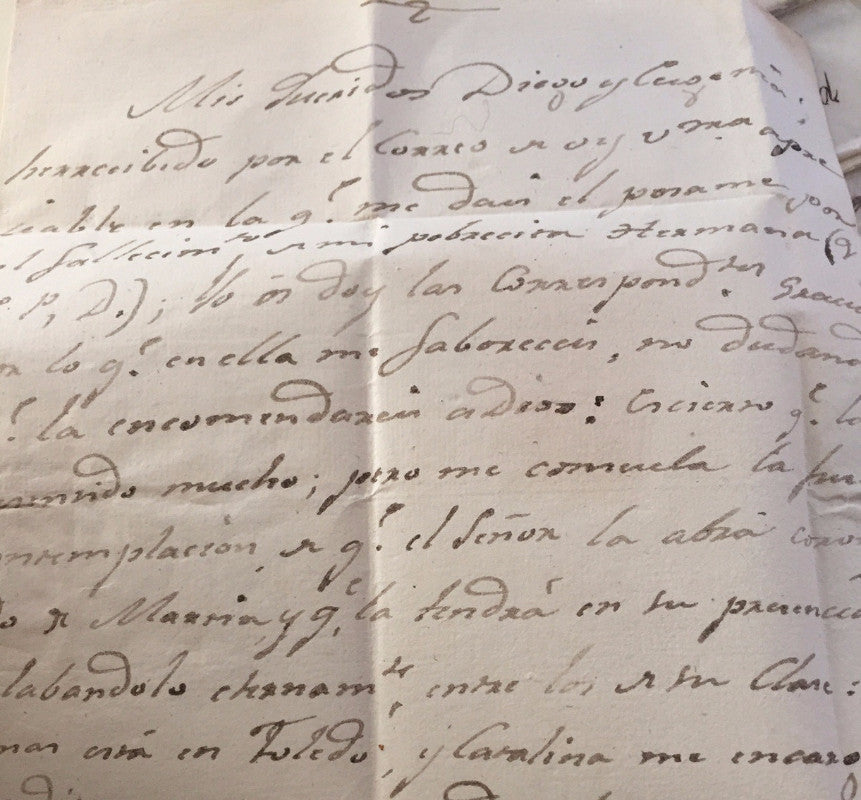 Mis queridos Diego y Eugenia:
he rrecibido por el Correo de oy vmra apre
ciable en la q.e me dais el pesame por
el fallecim.to de mi pobrecica Hermana (Q
e. p, D.); Yo os doy las Correspond.tes Gracia
or lo q.e en ella me faboreceis, no dudand
q.e la encomendareis a Dios: Es cierto q.e lo
sentido mucho; pero me consuela la
contemplacion de q.e el Señor la abrá coron
do de Martir, y q.e la tendrá en su presencia
alabandolo eternam.te, entre los de su Clase:
mas está en Toledo, y Catalina me encarg